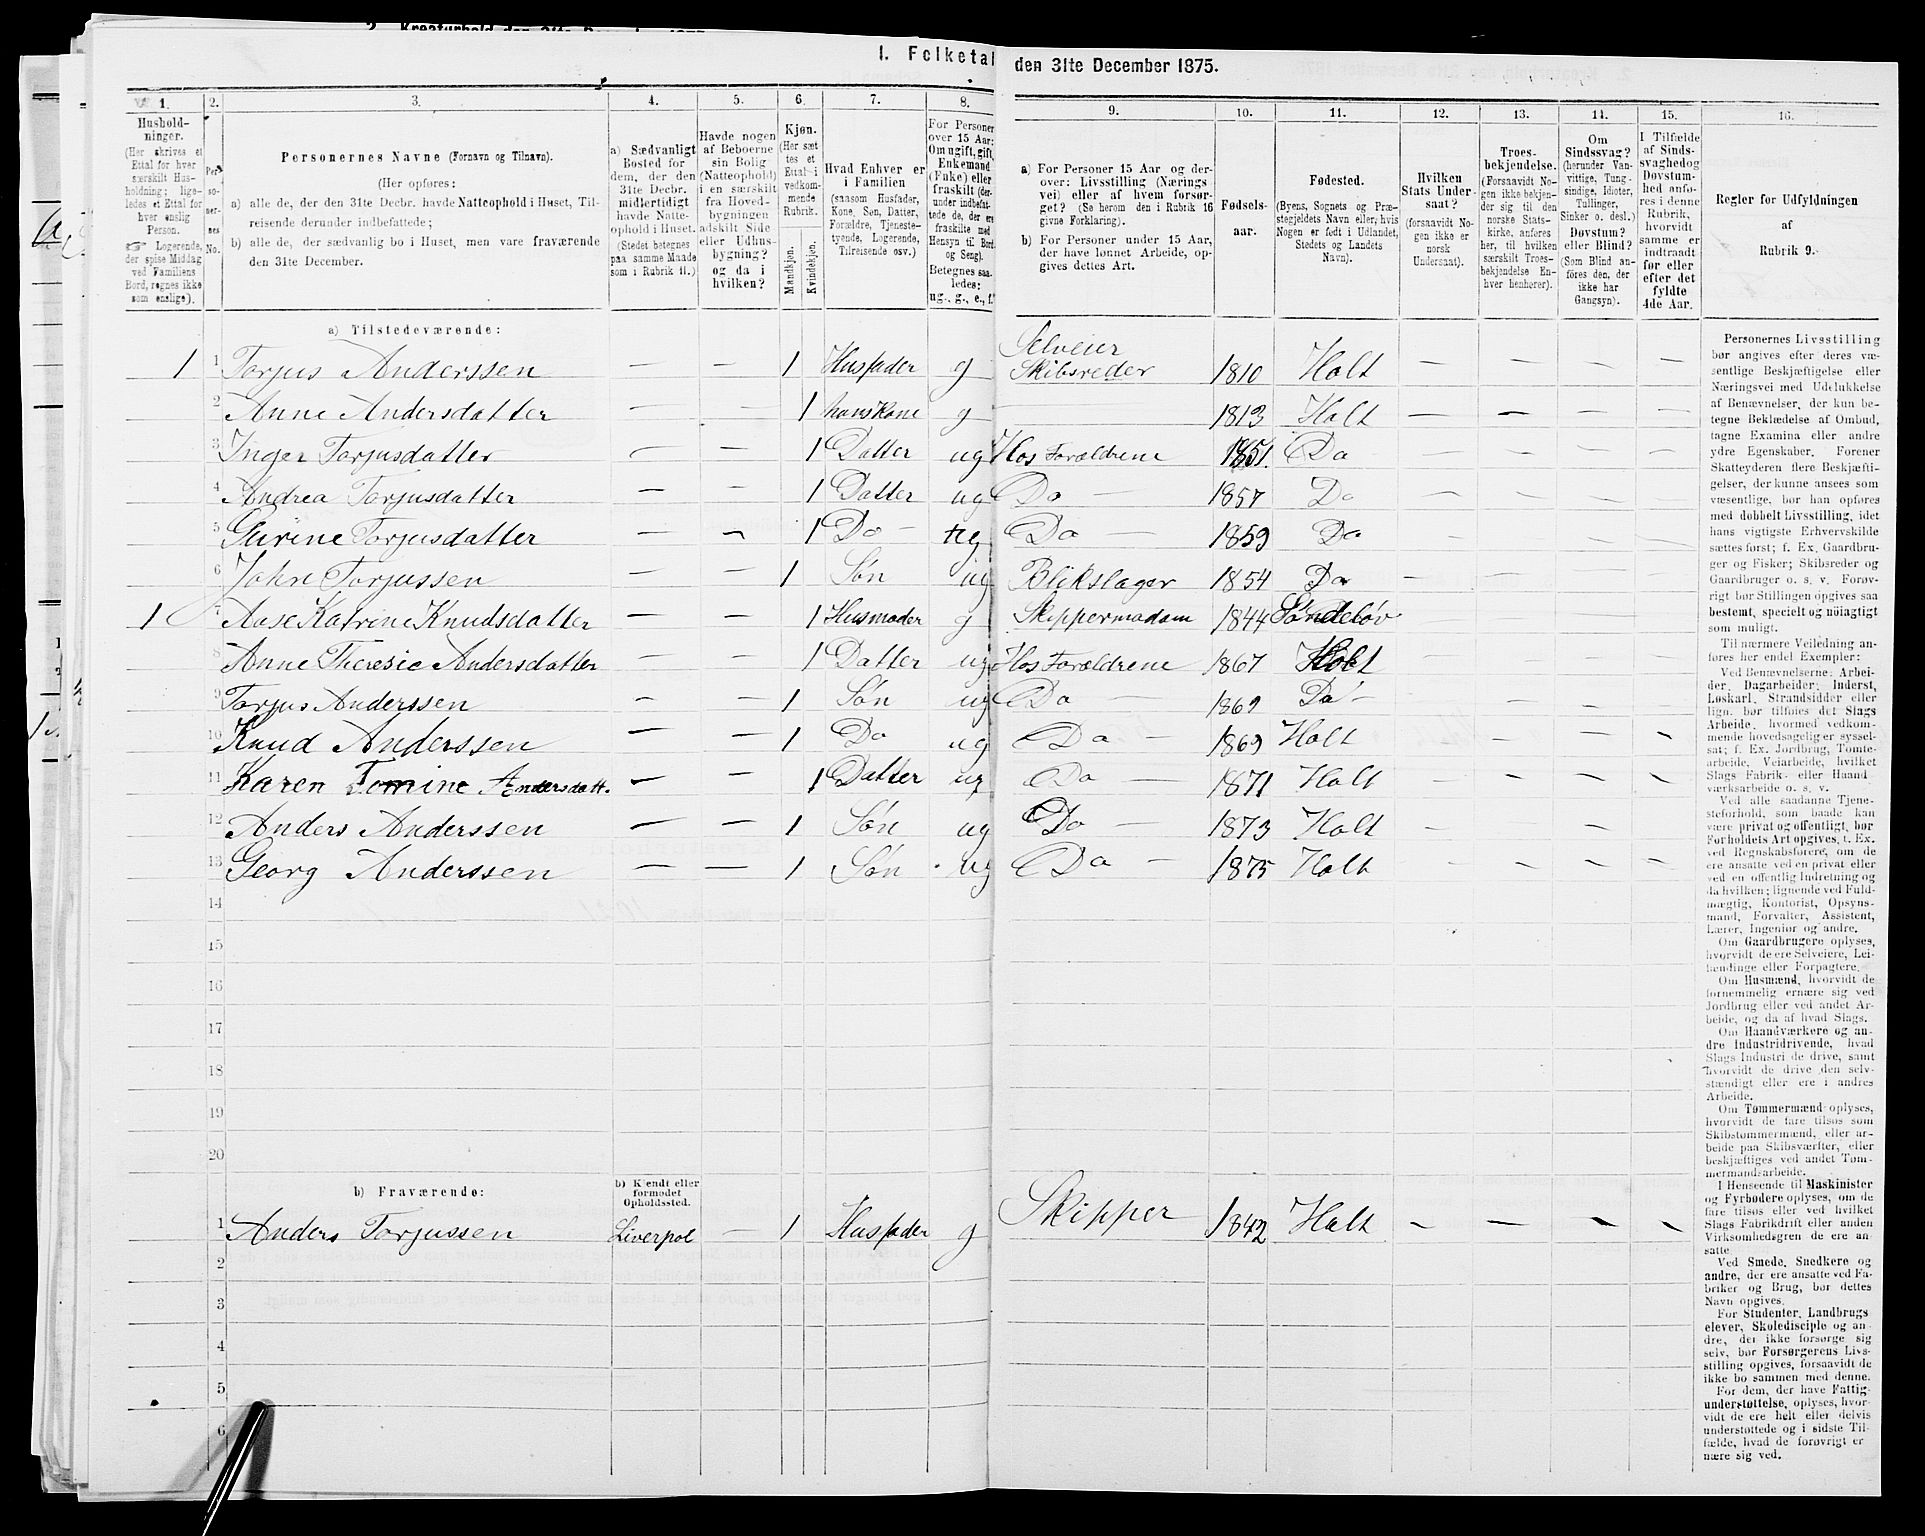 2. Kreaturhold den 31te December 1875
I. Folketal den 31te December 1875.
1. 2. 3. 4. 5. 6. 7. 8. 9. 10. 11. 12. 13. 14. 15. 16.
Hushold-
ninger.
(Her skrives et
Ettal for hver
særskilt Hus-
holdning; lige-
ledes et Ettal for
hver enslig
Person.
☞ Logerende,
der spise Middag
ved Familiens
Bord, regnes ikke
som enslige).
Per-
so-
ner-
nes
No.
Personernes Navne (Fornavn og Tilnavn).
(Her opføres:
a) alle de, der den 31te Decbr. havde Natteophold i Huset, Til-
reisende derunder indbefattede;
b) alle de, der sædvanlig bo i Huset, men vare fraværende
den 31te December.
a) Sædvanligt
Bosted for
dem, der den
31te Decbr.
midlertidigt
havde Natte-
ophold i Huset.
(Stedet betegnes
paa samme Maade
som i Rubrik 11.)
Havde nogen
af Beboerne
sin Bolig
(Natteophold)
i en særskilt
fra Hoved-
bygningen
adskilt Side
eller Udhus-
bygning?
og da i
hvilken?
Kjøn.
(Her sæt-
tes et
Ettal i
vedkom-
mende
Rubrik.
Mandkjøn. Kvindekjøn.
Hvad Enhver er
i Familien
(saasom Husfader,
Kone, Søn, Datter,
Forældre, Tjeneste-
tyende, Logerende,
Tilreisende osv.)
For Personer
over 15 Aar:
Om ugift, gift,
Enkemand
(Enke) eller
fraskilt (der-
under indbefat-
tede de, der ere
fraskilte med
Hensyn til Bord
og Seng).
Betegnes saa-
ledes:
ug., g., e., f.
a) For Personer 15 Aar og der-
over: Livsstilling (Nærings-
vei) eller af hvem forsør-
get? (Se herom den i Rubrik 16
givne Forklaring).
b) For Personer under 15 Aar,
der have lønnet Arbeide, op-
gives dettes Art.
Fødsels-
aar.
Fødested.
(Byens, Sognets og Præ-
stegjeldets Navn eller, hvis
Nogen er født i Udlandet,
Stedets og Landets
Navn).
Hvilken
Stats Under-
saat?
(forsaavidt No-
gen ikke er
norsk
Undersaat).
Troes-
bekjendelse.
(Forsaavidt No-
gen ikke bekjen-
der sig til den
norske Stats-
kirke, anføres
her, til hvilken
særskilt Troes-
bekjendelse En-
hver henhører).
Om
Sindssvag?
(herunder Van-
vittige, Tung-
sindige, Idioter,
Tullinger,
Sinker o. desl.)
Døvstum?
eller Blind?
(Som Blind an-
føres den, der
ikke har
Gangsyn).
I Tilfælde
af Sinds-
svaghed og
Døvstum-
hed anfø-
res i denne
Rubrik,
hvorvidt
samme er
indtraadt
før eller
efter det
fyldte
4de Aar.
Regler for Udfyldningen
af
Rubrik 9.
a) Tilstedeværende:
1 1 Torjus Anderssen — — 1 Husfader g Selveier Skibsreder 1810 Holt — — — —
2 Anne Andersdatter — — 1 hans Kone g — 1813 Holt — — — —
3 Inger Torjusdatter — — 1 Datter ug Hos Forældrene 1851. Do — — — —
4 Andrea Torjusdatter — — 1 Datter ug Do — 1857 Do — — — —
5 Gurine Torjusdatter — — 1 Do — ug Do — 1859 Do — — — —
6 John Torjussen — — 1 Søn ug Blikslager 1854 Do — — — —
1 7 Aase Katrine Knudsdatter — — 1 Husmoder g Skippermadam 1844 Søndeløv — — — —
8 Anne Theresie Andersdatter — — 1 Datter ug Hos Forældrene 1867 Holt — — — —
9 Torjus Anderssen — — 1 Søn ug Do — 1869 Do — — — — —
10 Knud Anderssen — — 1 Do ug Do — 1869 Holt — — —
11 Karen Tomine Andersdatt. — — 1 Datter ug Do — 1871 Holt — — — —
12 Anders Anderssen — — 1 Søn ug Do — 1873 Holt — — — —
13 Georg Anderssen — — 1 Søn ug Do — 1875 Holt — — — —
14
15
16
17
18
19
20
b) Fraværende:
b) Kjendt eller
formodet
Opholdssted.
1 Anders Torjussen Liverpol — 1 Husfader g Skipper 1842 Holt — — — —
2
3
4
5
6
Personernes Livsstilling
bør angives efter deres væ-
sentlige Beskjæftigelse eller
Næringsvei med Udelukkelse
af Benævnelser, der kun be-
tegne Beklædelse af Ombud,
tagne Examina eller andre
ydre Egenskaber. Forener
Skatteyderen flere Beskjæfti-
gelser, der kunne ansees som
væsentlige, bør han opføres
med dobbelt Livsstilling, idet
hans vigtigste Erhvervskilde
sættes først; f. Ex. Gaardbru-
ger og Fisker; Skibsreder og
Gaardbruger o. s. v. Forøv-
rigt bør Stillingen opgives saa
bestemt, specielt og nøiagtigt
som muligt.
Til nærmere Veiledning an-
føres her endel Exempler:
Ved Benævnelserne: Arbei-
der, Dagarbeider, Inderst,
Løskarl, Strandsidder eller
lign. bør tilføies det Slags
Arbeide, hvormed vedkom-
mende hovedsagelig er syssel-
sat; f. Ex. Jordbrug, Tomte-
arbeide, Veiarbeide, hvilket
Slags Fabrik- eller Haand-
værksarbeide o. s. v.
Ved alle saadanne Tjene-
steforhold, som baade kan
være privat og offentligt, bør
Forholdets Art opgives, t. Ex.
ved Regnskabsførere, om de
ere ansatte ved en privat eller
ved en offentlig Indretning og
da hvilken; lignende ved Fuld-
mægtig, Kontorist, Opsyns-
mand, Forvalter, Assistent,
Lærer, Ingeniør og andre.
Om Gaardbrugere oplyses,
hvorvidt de ere Selveiere, Lei-
lændinge eller Forpagtere.
Om Husmænd, hvorvidt de
fornemmelig ernære sig ved
Jordbrug eller ved andet Ar-
beide, og da af hvad Slags.
Om Haandværkere og an-
dre Industridrivende, hvad
Slags Industri de drive, samt
hvorvidt de drive den selv-
stændigt eller ere i andres
Arbeide.
Om Tømmermænd oplyses,
hvorvidt de fare tilsøs som
Skibstømmermænd, eller ar-
beide paa Skibsværfter, eller
beskjæftiges ved andet Tøm-
mermandsarbeide.
I Henseende til Maskinister
og Fyrbødere oplyses, om de
fare tilsøs eller ved hvilket
Slags Fabrikdrift eller anden
Virksomhedsgren de ere an-
satte.
Ved Smede, Snedkere og
andre, der ere ansatte ved Fa-
briker og Brug, bør dettes
Navn opgives.
For Studenter, Landbrugs-
elever, Skoledisciple og an-
dre, der ikke forsørge sig
selv, bør Forsørgerens Livs-
stilling opgives, forsaavidt de
ikke bo sammen med denne.
For dem, der have Fattig-
understøttelse, oplyses, hvor-
vidt de ere helt eller delvis
understøttede og i sidste Til-
fælde, hvad de forøvrigt er-
nære sig ved.